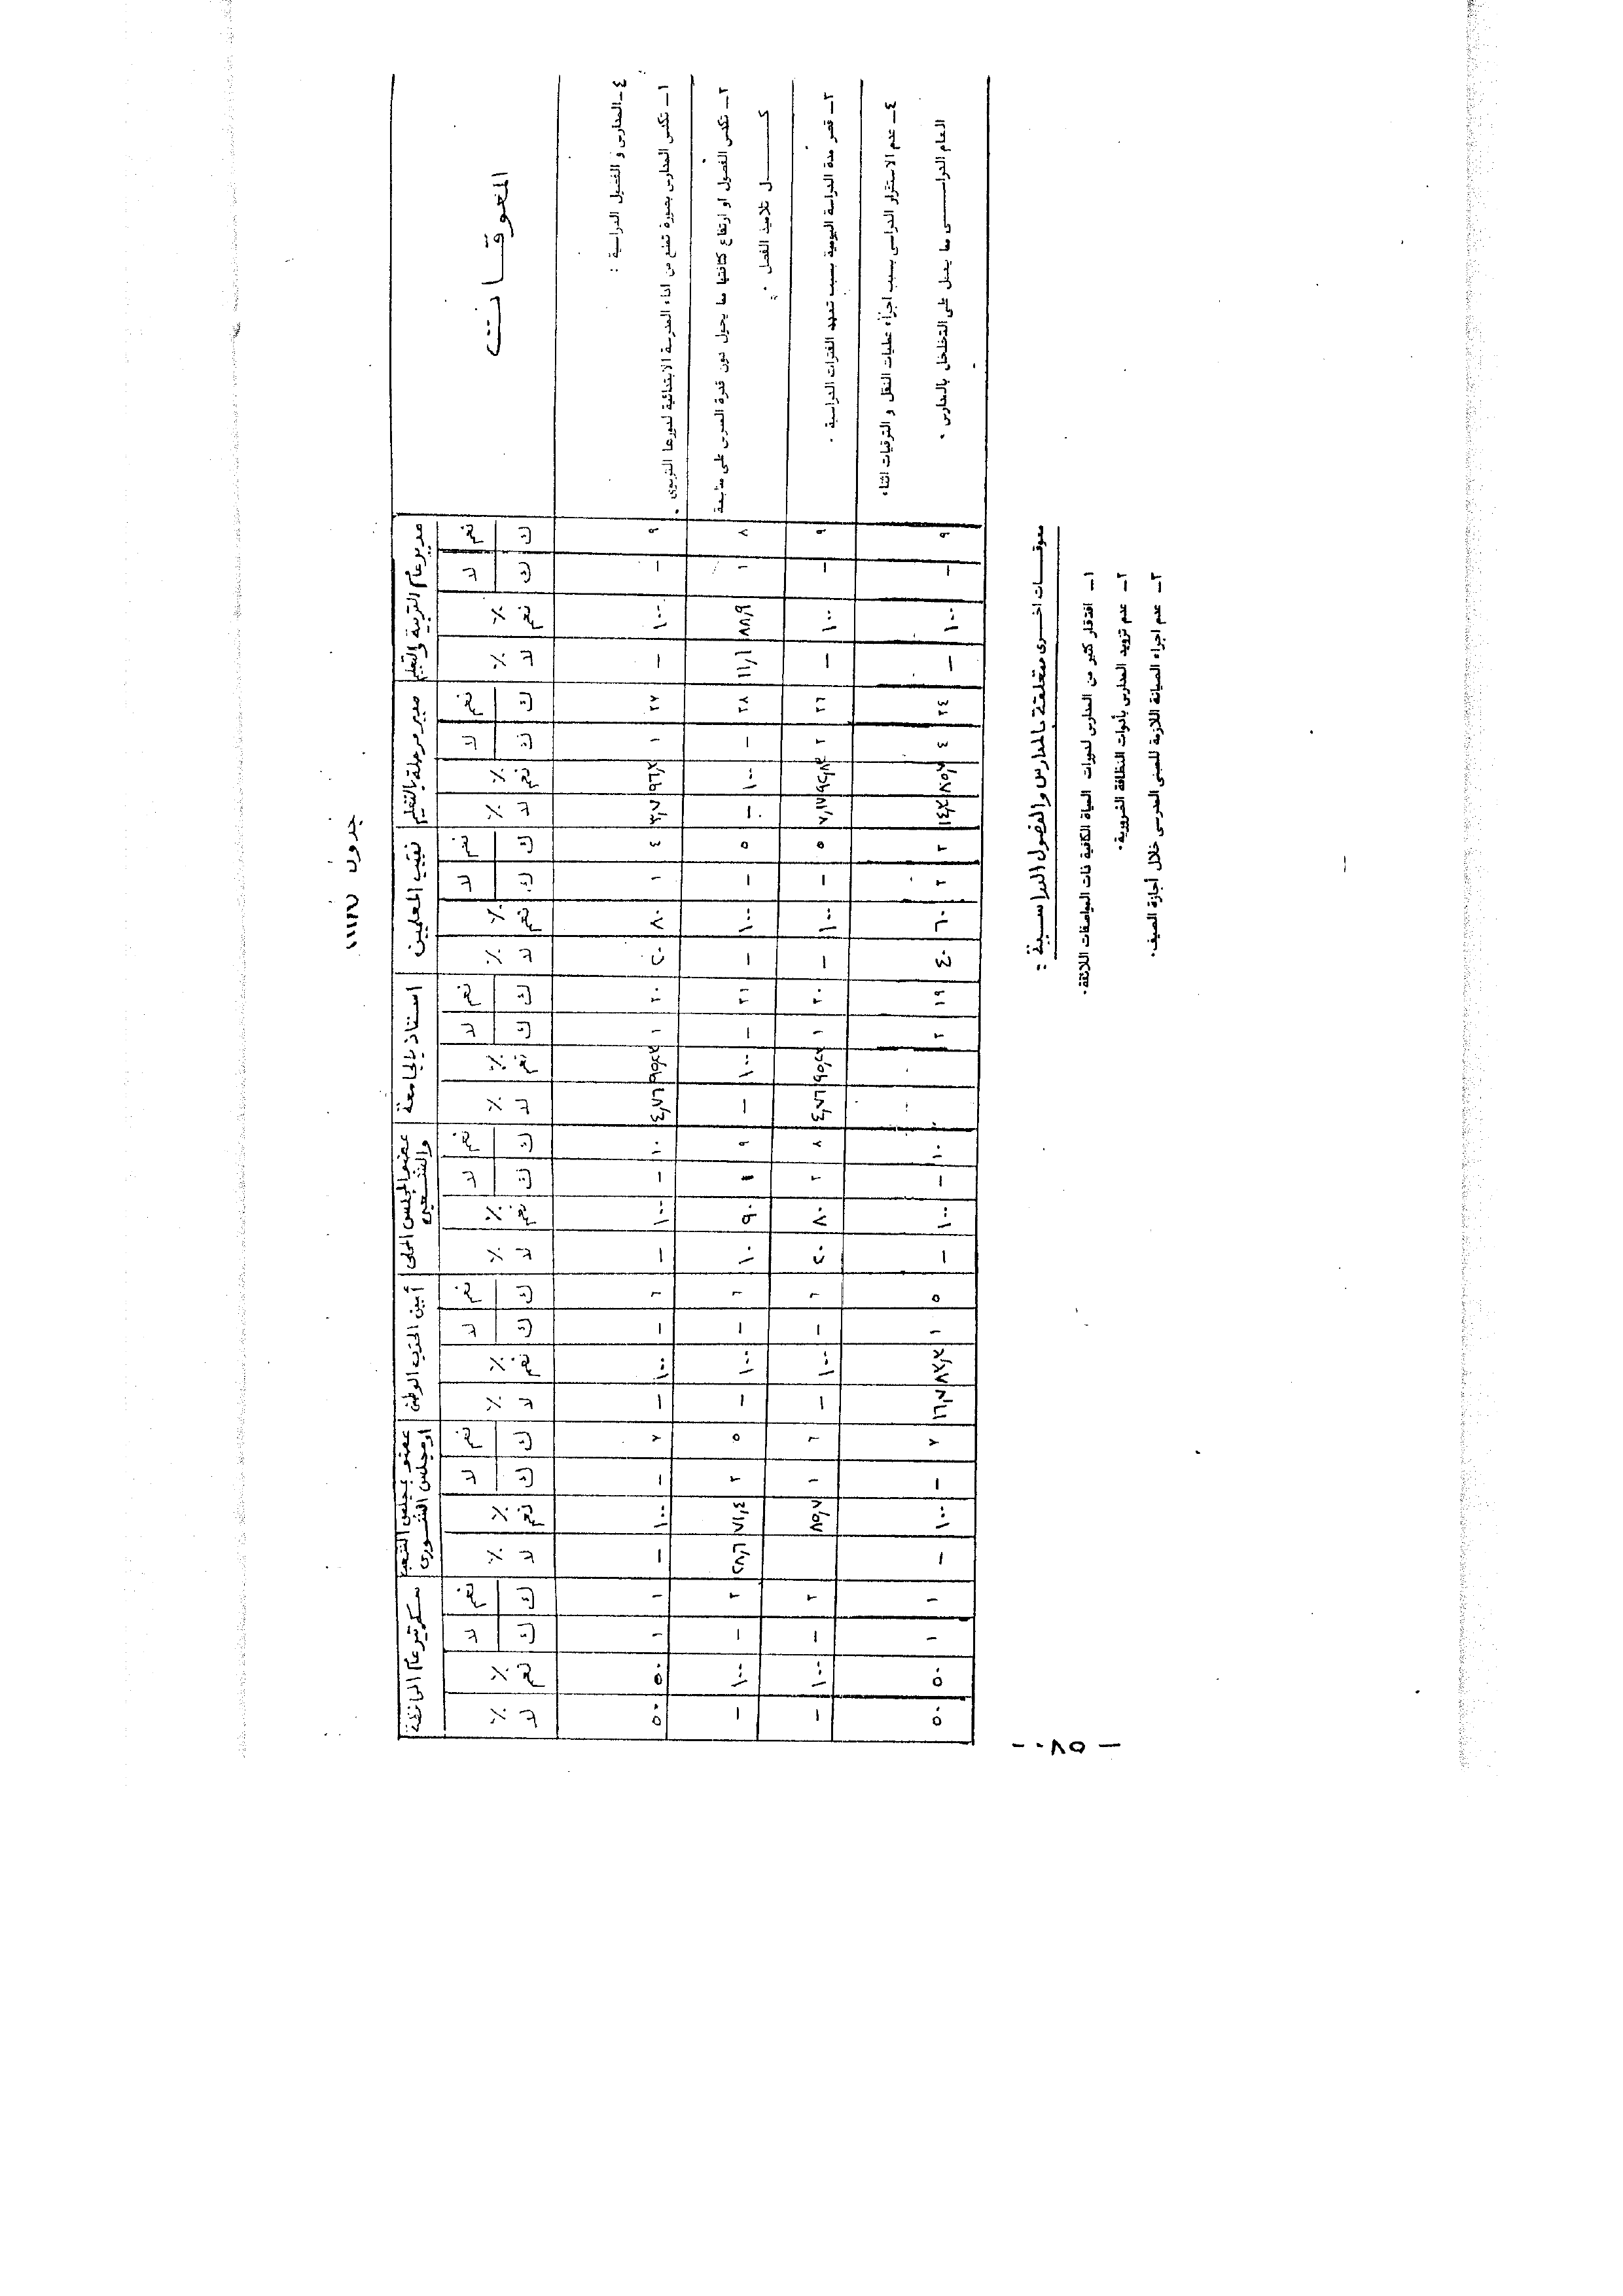 جدول
المعوقـــات
مدير عام التربية والتعليم
مدير مرحلة بالتعليم
نقيب المعلمين
استاذ بالجامعة
عضو المجلس المحلى والشعبى
أمين الحزب الوطنى
عضو بمجلس الشعب او مجلس الشورى
سكرتير عام المحافظة
نعم لا ٪ ٪ نعم لا ٪ ٪ نعم لا ٪ ٪ نعم لا ٪ ٪ نعم لا ٪ ٪ نعم لا ٪ ٪ نعم لا ٪ ٪ نعم لا ٪ ٪
ك ك نعم لا ك ك نعم لا ك ك نعم لا ك ك نعم لا ك ك نعم لا ك ك نعم لا ك ك نعم لا ك ك نعم لا
٤ـ المدارس و الفصول الدراسية :
١ـ تكدس المدارس بصورة تمنع من اداء المدرسة الابتدائية لدورها التربوى .
٩ – ١٠٠ – ٢٧ ١ ٩٦,٣ ٣,٧ ٤ ١ ٨٠ ٢٠ ٢٠ ١ ٩٥,٢٣ ٤,٧٦ ١٠ – ١٠٠ – ٦ – ١٠٠ – ٧ – ١٠٠ – ١ ١ ٥٠ ٥٠
٢ـ تكدس الفصول او ارتفاع كثافتها مما يحول دون قدرة المدرس على متابعة
كـــــل تلاميذ الفصل .
٨ ١ ٨٨,٩ ١١,١ ٢٨ – ١٠٠ – ٥ – ١٠٠ – ٢١ – ١٠٠ – ٩ ١ ٩٠ ١٠ ٦ – ١٠٠ – ٥ ٢ ٧١,٤ ٢٨,٦ ٢ – ١٠٠ –
٣ـ قصر مدة الدراسة اليومية بسبب تعدد الفترات الدراسية .
٩ – ١٠٠ – ٢٦ ٢ ٧,١٧ ٥ – ١٠٠ – ٢٠ ١ ٩٥,٢٣ ٤,٧٦ ٨ ٢ ٨٠ ٢٠ ٦ – ١٠٠ – ٦ ١ ٨٥,٧ ٢ – ١٠٠ –
٤ـ عدم الاستقرار الدراسى بسبب اجراء عمليات النقل و الترقيات اثناء
العام الدراســـى مما يعمل على التخلخل بالمدارس .
٩ – ١٠٠ – ٢٤ ٤ ٨٥,٧ ١٤,٣ ٣ ٢ ٦٠ ٤٠ ١٩ ٢ ١٠ – ١٠٠ – ٥ ١ ٨٣,٣ ١٦,٧ ٧ – ١٠٠ – ١ ١ ٥٠ ٥٠
معوقـــات اخـرى متعلقة بالمدارس والفصول الدراسية :
١ـ افتقار كثير من المدارس لدورات المياة الكافية ذات المواصفات اللائقة .
٢ـ عدم تزويد المدارس بأدوات النظافة الضرورية .
٣ـ عدم اجراء الصيانة اللازمة للمبنى المدرسى خلال أجازة الصيف .